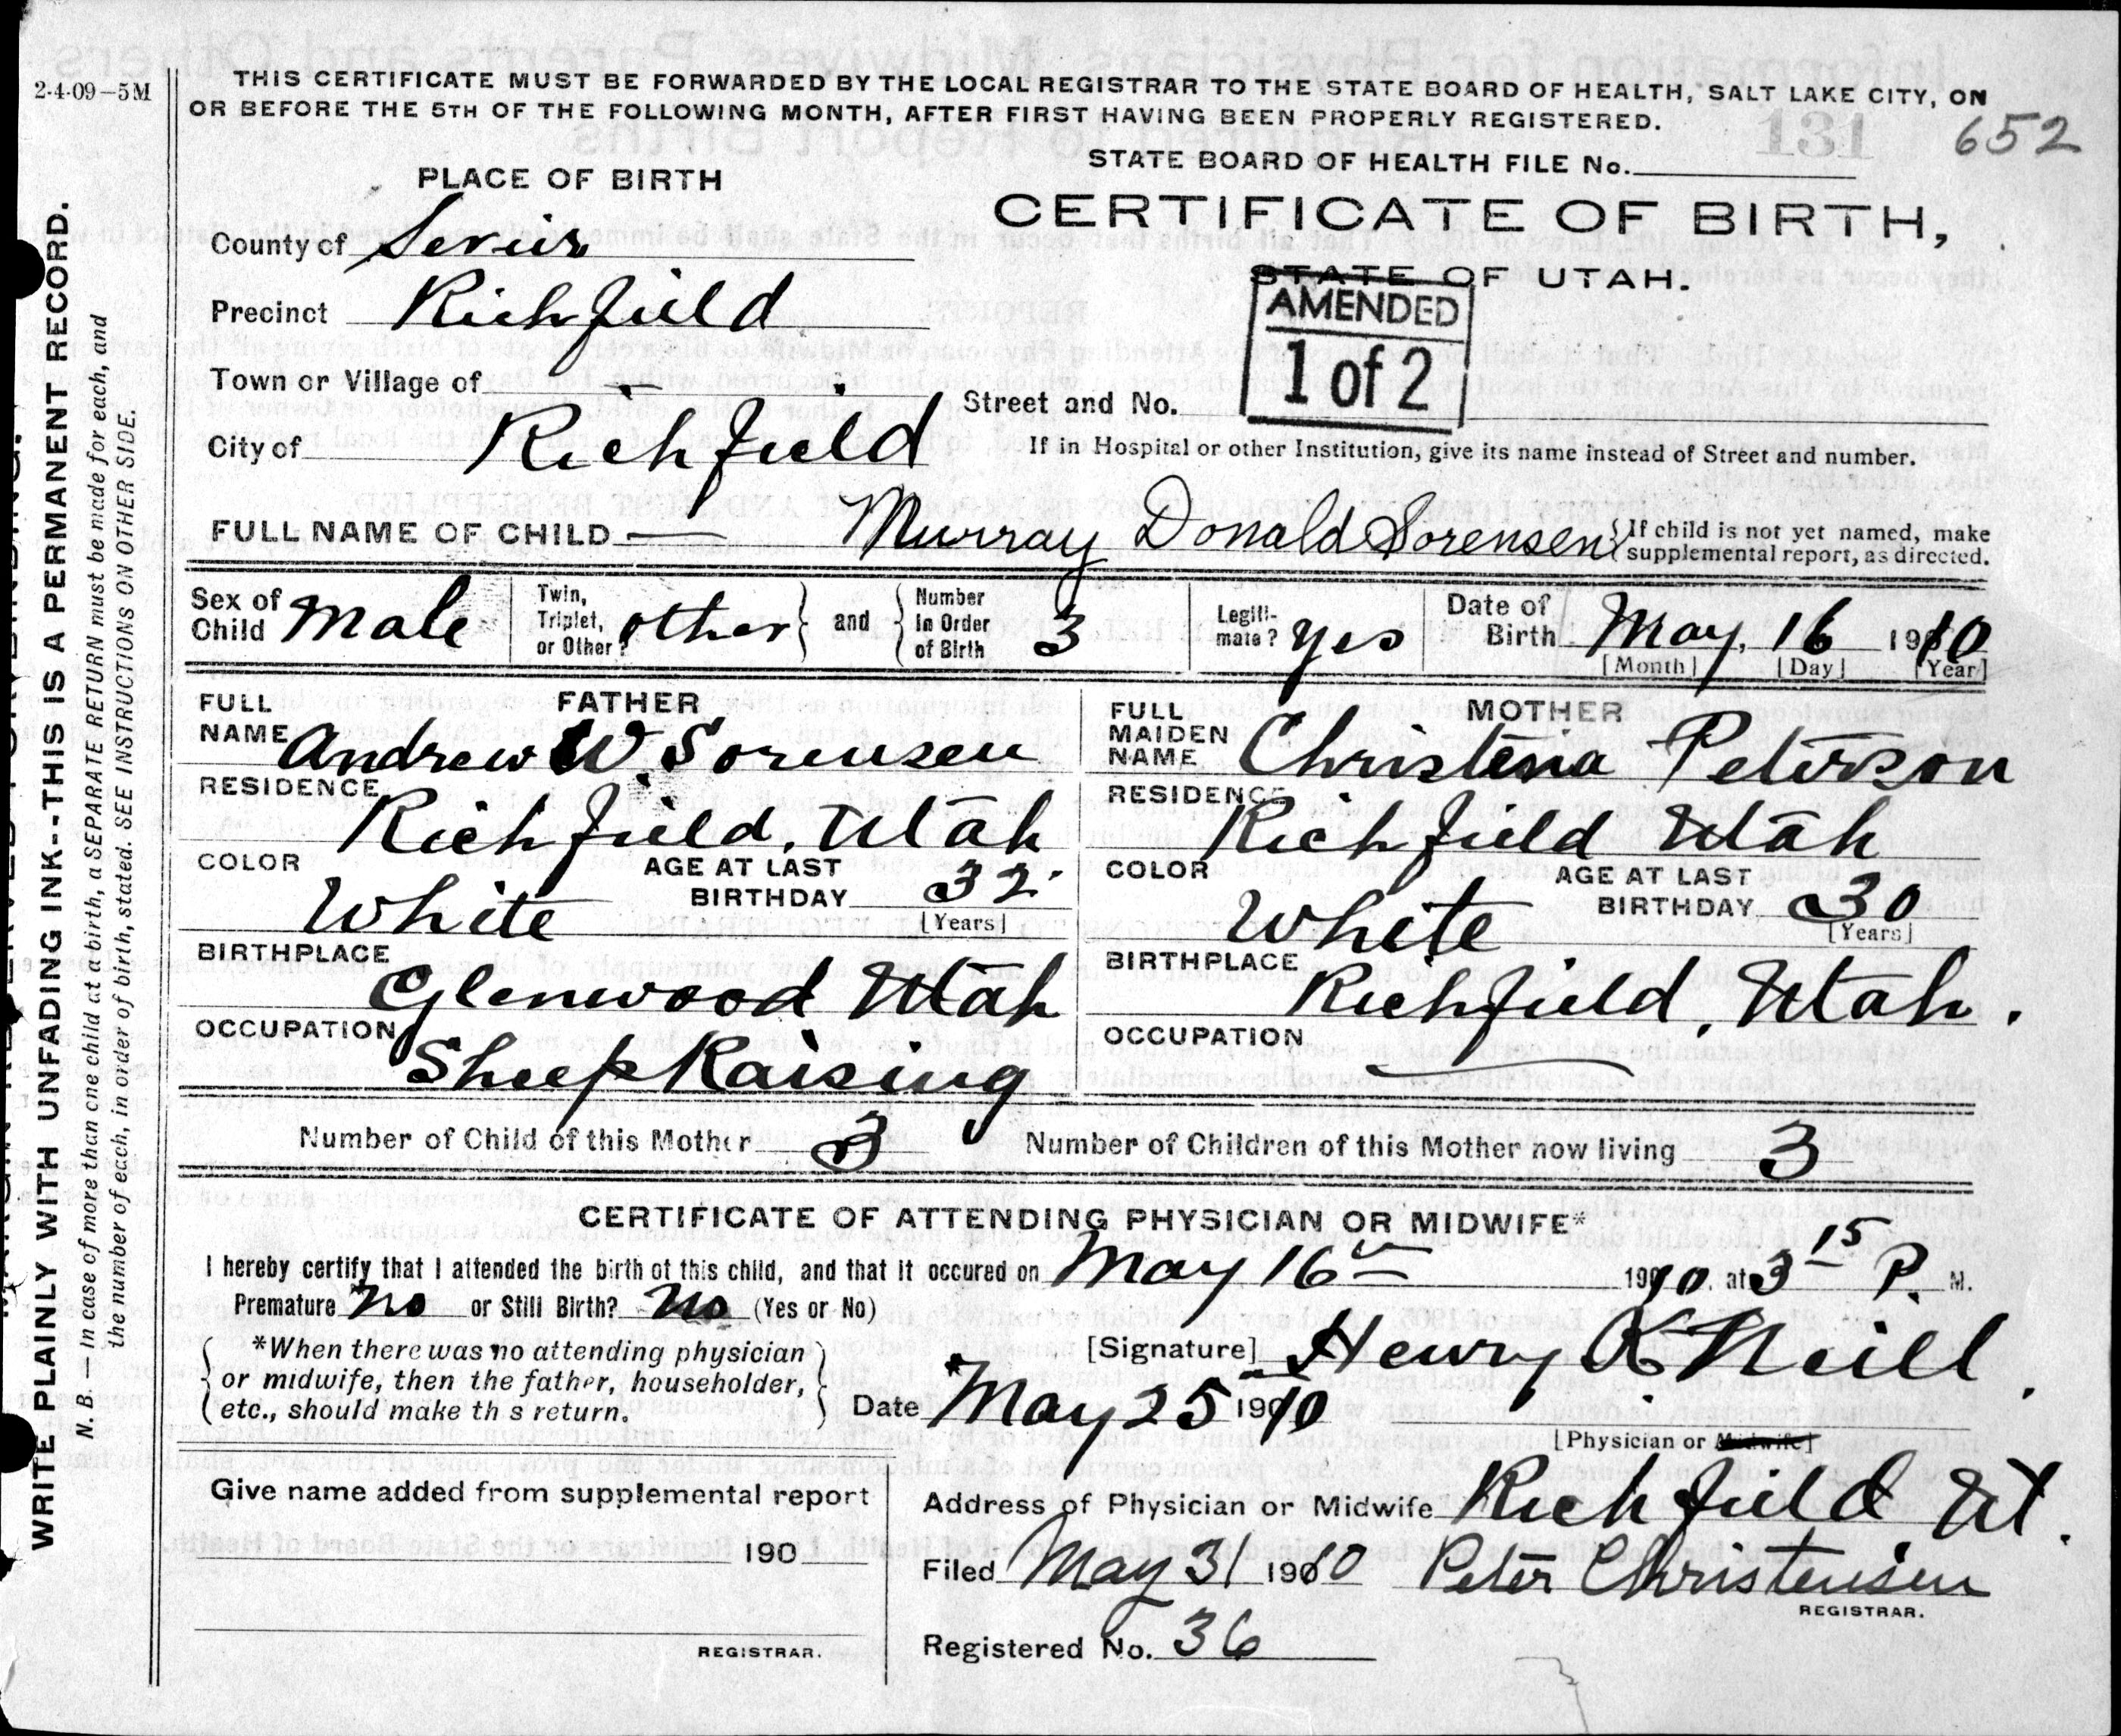 2-4-09-5M
THIS CERTIFICATE MUST BE FORWARDED BY THE LOCAL REGISTRAR TO THE STATE BOARD OF HEALTH, SALT LAKE CITY, ON
OR BEFORE THE 5TH OF THE FOLLOWING MONTH, AFTER FIRST HAVING BEEN PROPERLY REGISTERED.
131 652
STATE BOARD OF HEALTH FILE No.
PLACE OF BIRTH
CERTIFICATE OF BIRTH,
STATE OF UTAH.
County of Sevier
Precinct Richfield
AMENDED
1 of 2
Town or Village of
Street and No.
City of Richfield
If in Hospital or other Institution, give its name instead of Street and number.
FULL NAME OF CHILD Murray Donald Sorensen
If child is not yet named, make
supplemental report, as directed.
Sex of Child Male
Twin, Triplet, or Other? other and Number in Order of Birth 3
Legitimate? yes
Date of Birth May, 16 1910
[Month] [Day] [Year]
FATHER
FULL NAME Andrew W. Sorensen
RESIDENCE Richfield, Utah
COLOR White
AGE AT LAST BIRTHDAY 32
[Years]
BIRTHPLACE Glenwood Utah
OCCUPATION Sheep Raising
MOTHER
FULL MAIDEN NAME Christena Peterson
RESIDENCE Richfield Utah
COLOR White
AGE AT LAST BIRTHDAY 30
[Years]
BIRTHPLACE Richfield, Utah.
OCCUPATION
Number of Child of this Mother 3 Number of Children of this Mother now living 3
CERTIFICATE OF ATTENDING PHYSICIAN OR MIDWIFE*
I hereby certify that I attended the birth of this child, and that it occured on May 16th 1910. at 3 15 P. M.
Premature no or Still Birth? no (Yes or No)
*When there was no attending physician
or midwife, then the father, householder,
etc., should make th s return.
[Signature] Henry K Neill.
Date May 25 1910
[Physician or Midwife]
Give name added from supplemental report
190
REGISTRAR.
Address of Physician or Midwife Richfield Ut.
Filed May 31 1910 Peter Christensen
REGISTRAR.
Registered No. 36
WRITE PLAINLY WITH UNFADING INK--THIS IS A PERMANENT RECORD.
N. B.—In case of more than one child at a birth, a SEPARATE RETURN must be made for each, and
the number of each, in order of birth, stated. SEE INSTRUCTIONS ON OTHER SIDE.